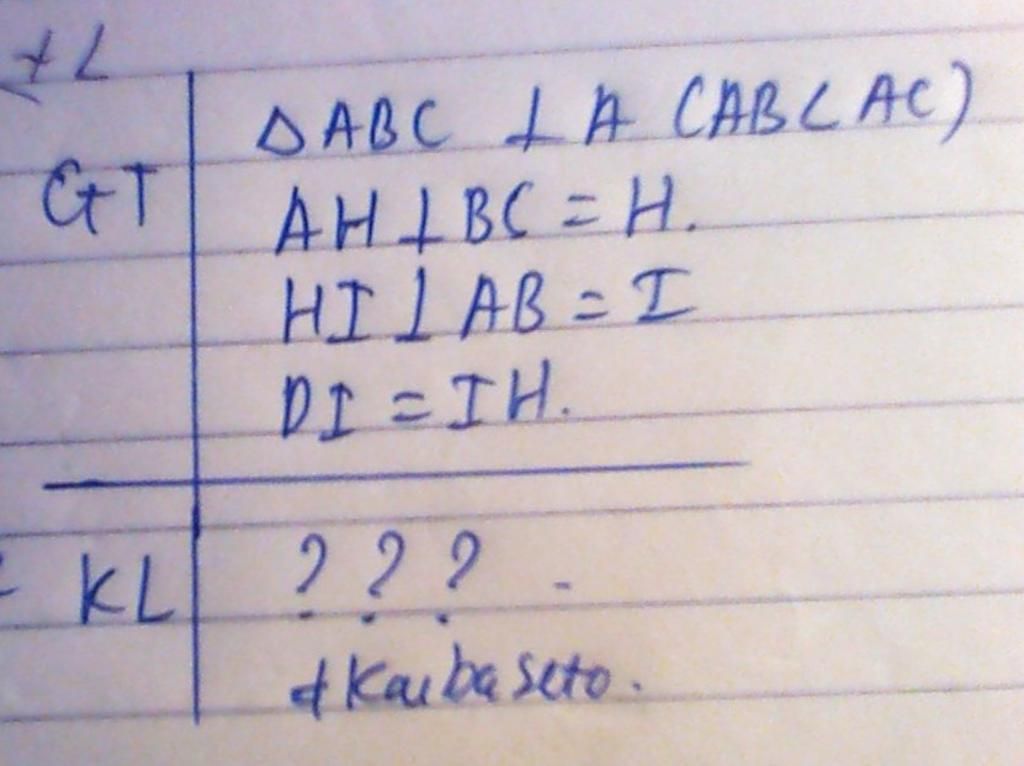 ΔABC ⊥ A (AB < AC)
GT
AH ⊥ BC = H.
HI ⊥ AB = I
DI = IH.
KL ? ? ?
Kaiba Seto.